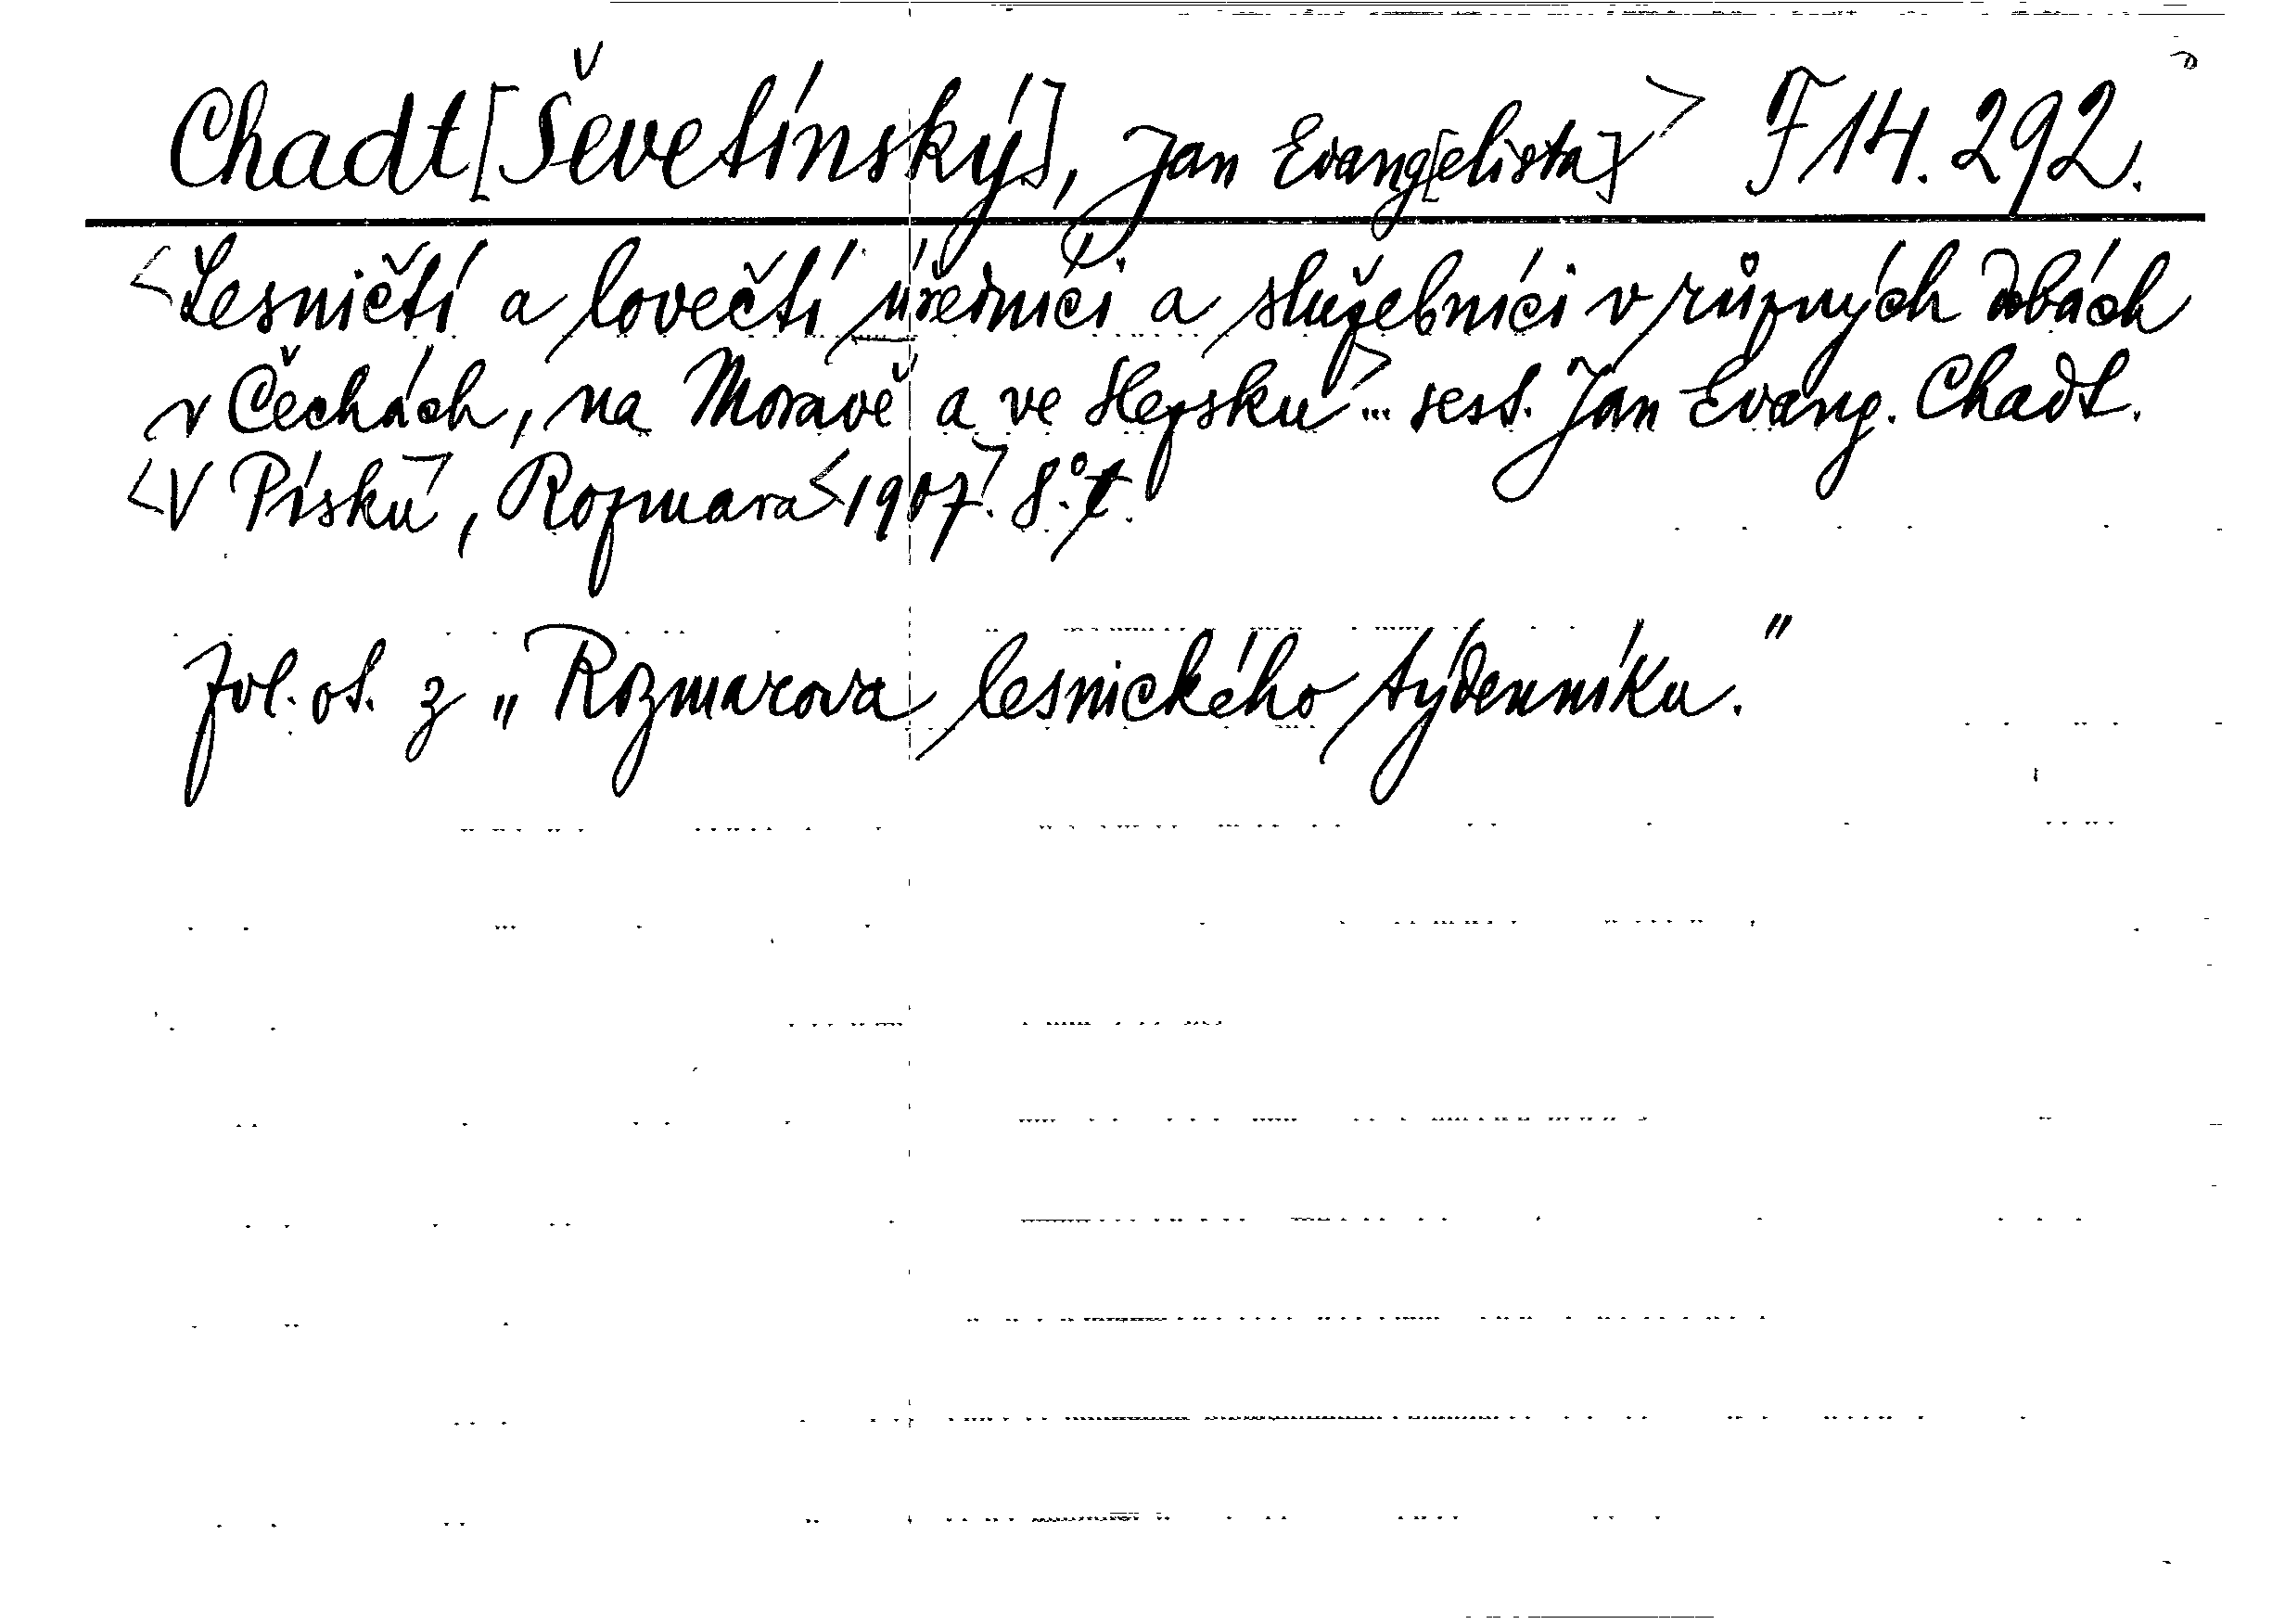 Chadt[Ševetínský], Jan Evang[elista]> F 14.292.
<Lesničtí a lovečtí úředníci a služebníci v různých dobách
v Čechách, na Moravě a ve Slezsku>... sest. Jan Evang. Chadt.
<V Písku>, Rozmara <1907>. 8°.
Zvl. ot. z „Rozmarova lesnického týdenníku."